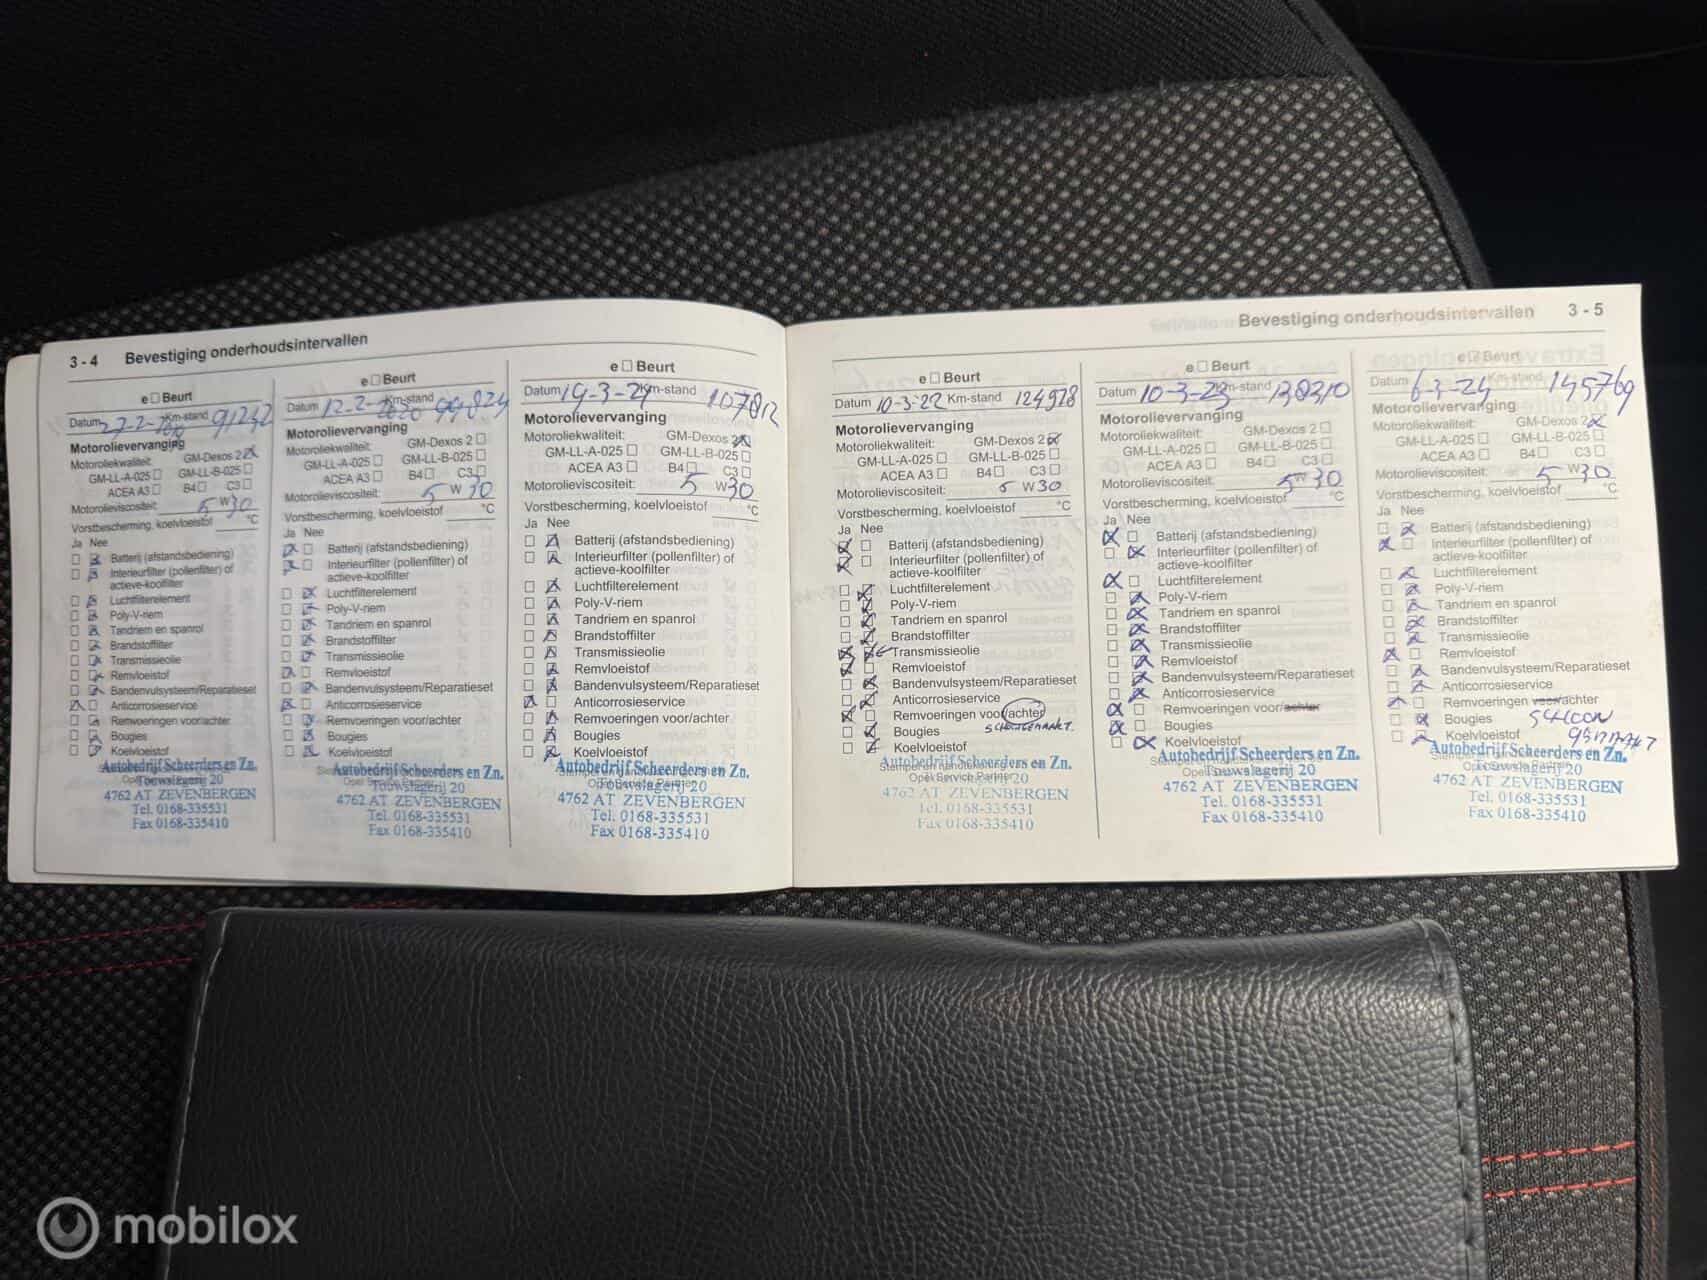 3 - 4 Bevestiging onderhoudsintervallen
e Beurt
Datum 27-2- Km-stand 91242
Motorolievervanging
Motoroliekwaliteit: GM-Dexos 2
GM-LL-A-025 GM-LL-B-025
ACEA A3 B4 C3
Motorolieviscositeit: 5 W 30
Vorstbescherming, koelvloeistof °C
Ja Nee
Batterij (afstandsbediening)
Interieurfilter (pollenfilter) of
actieve-koolfilter
Luchtfilterelement
Poly-V-riem
Tandriem en spanrol
Brandstoffilter
Transmissieolie
Remvloeistof
Bandenvulsysteem/Reparatieset
Anticorrosieservice
Remvoeringen voor/achter
Bougies
Koelvloeistof
Autobedrijf Scheerders en Zn.
Touwslagerij 20
4762 AT ZEVENBERGEN
Tel. 0168-335531
Fax 0168-335410
e Beurt
Datum 12-2-2020 Km-stand 99824
Motorolievervanging
Motoroliekwaliteit: GM-Dexos 2
GM-LL-A-025 GM-LL-B-025
ACEA A3 B4 C3
Motorolieviscositeit: 5 W 30
Vorstbescherming, koelvloeistof °C
Ja Nee
Batterij (afstandsbediening)
Interieurfilter (pollenfilter) of
actieve-koolfilter
Luchtfilterelement
Poly-V-riem
Tandriem en spanrol
Brandstoffilter
Transmissieolie
Remvloeistof
Bandenvulsysteem/Reparatieset
Anticorrosieservice
Remvoeringen voor/achter
Bougies
Koelvloeistof
Autobedrijf Scheerders en Zn.
Touwslagerij 20
4762 AT ZEVENBERGEN
Tel. 0168-335531
Fax 0168-335410
e Beurt
Datum 19-3-21 Km-stand 107812
Motorolievervanging
Motoroliekwaliteit: GM-Dexos 2
GM-LL-A-025 GM-LL-B-025
ACEA A3 B4 C3
Motorolieviscositeit: 5 W 30
Vorstbescherming, koelvloeistof °C
Ja Nee
Batterij (afstandsbediening)
Interieurfilter (pollenfilter) of
actieve-koolfilter
Luchtfilterelement
Poly-V-riem
Tandriem en spanrol
Brandstoffilter
Transmissieolie
Remvloeistof
Bandenvulsysteem/Reparatieset
Anticorrosieservice
Remvoeringen voor/achter
Bougies
Koelvloeistof
Autobedrijf Scheerders en Zn.
Touwslagerij 20
4762 AT ZEVENBERGEN
Tel. 0168-335531
Fax 0168-335410
Bevestiging onderhoudsintervallen 3 - 5
e Beurt
Datum 10-3-22 Km-stand 124578
Motorolievervanging
Motoroliekwaliteit: GM-Dexos 2
GM-LL-A-025 GM-LL-B-025
ACEA A3 B4 C3
Motorolieviscositeit: 5 W 30
Vorstbescherming, koelvloeistof °C
Ja Nee
Batterij (afstandsbediening)
Interieurfilter (pollenfilter) of
actieve-koolfilter
Luchtfilterelement
Poly-V-riem
Tandriem en spanrol
Brandstoffilter
Transmissieolie
Remvloeistof
Bandenvulsysteem/Reparatieset
Anticorrosieservice
Remvoeringen voor/achter
Bougies
Koelvloeistof
Autobedrijf Scheerders en Zn.
Opel Service Partner
4762 AT ZEVENBERGEN
Tel. 0168-335531
Fax 0168-335410
e Beurt
Datum 10-3-23 Km-stand 138310
Motorolievervanging
Motoroliekwaliteit: GM-Dexos 2
GM-LL-A-025 GM-LL-B-025
ACEA A3 B4 C3
Motorolieviscositeit: 5 W 30
Vorstbescherming, koelvloeistof °C
Ja Nee
Batterij (afstandsbediening)
Interieurfilter (pollenfilter) of
actieve-koolfilter
Luchtfilterelement
Poly-V-riem
Tandriem en spanrol
Brandstoffilter
Transmissieolie
Remvloeistof
Bandenvulsysteem/Reparatieset
Anticorrosieservice
Remvoeringen voor/achter
Bougies
Koelvloeistof
Autobedrijf Scheerders en Zn.
Touwslagerij 20
4762 AT ZEVENBERGEN
Tel. 0168-335531
Fax 0168-335410
e Beurt
Datum 6-3-24 Km-stand 145769
Motorolievervanging
Motoroliekwaliteit: GM-Dexos 2
GM-LL-A-025 GM-LL-B-025
ACEA A3 B4 C3
Motorolieviscositeit: 5 W 30
Vorstbescherming, koelvloeistof °C
Ja Nee
Batterij (afstandsbediening)
Interieurfilter (pollenfilter) of
actieve-koolfilter
Luchtfilterelement
Poly-V-riem
Tandriem en spanrol
Brandstoffilter
Transmissieolie
Remvloeistof
Bandenvulsysteem/Reparatieset
Anticorrosieservice
Remvoeringen voor/achter
Bougies SCHOON
Koelvloeistof GEMAAKT
Autobedrijf Scheerders en Zn.
Touwslagerij 20
4762 AT ZEVENBERGEN
Tel. 0168-335531
Fax 0168-335410
mobilox